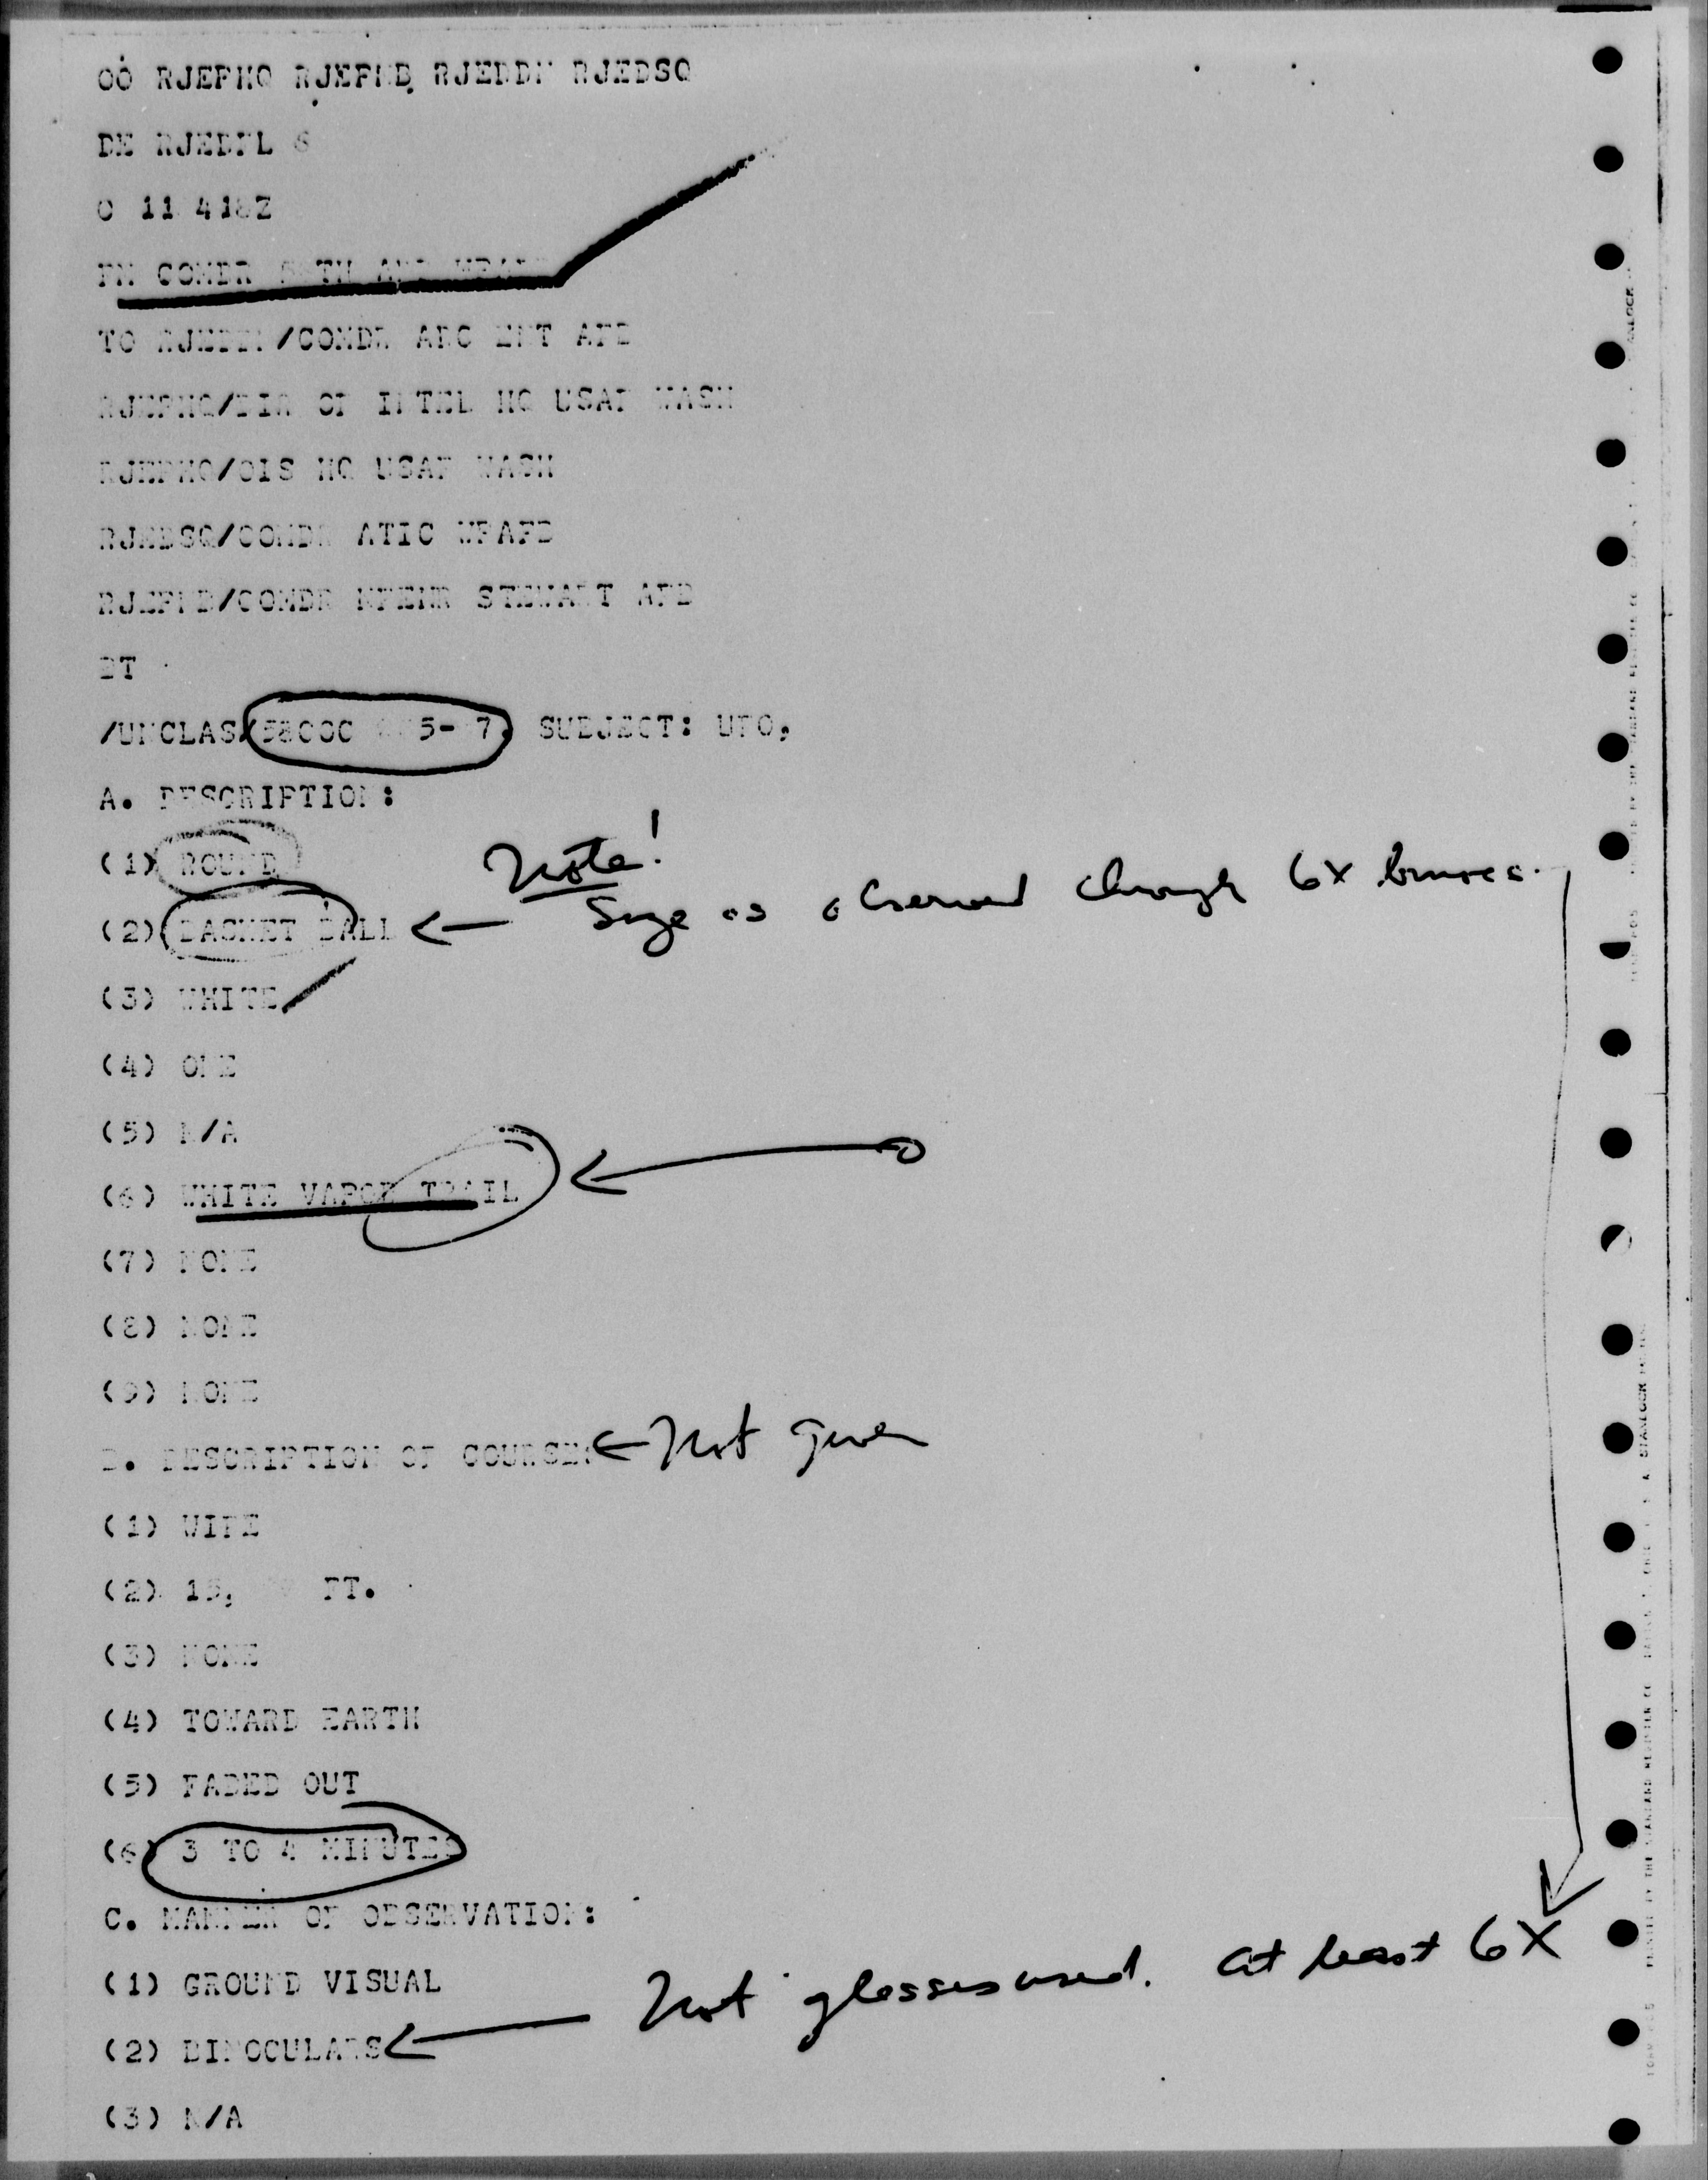 OO RJEPHQ RJEPNB RJEDDN RJEDSQ
DE RJEDFL 6
O 11 4 Z
FM COMDR TH
TO /COMDR ADC ENT AFB
RJEPHQ/DIR OF INTEL HQ USAF WASH
RJEPHQ/OIS HQ USAF WASH
RJEDSQ/COMDR ATIC WPAFB
RJEPNB/COMDR STEWART AFB
BT
/UNCLAS/58OOC 5- 7. SUBJECT: UFO,
A. DESCRIPTION:
(1) ROUND
Note!
(2) BASKET BALL ← Size as observed through 6X
(3) WHITE
(4) ONE
(5) N/A
(6) WHITE VAPOR TRAIL
(7) NONE
(8) NONE
(9) NONE
B. DESCRIPTION OF COURSE: ← Not given
(1) WIFE
(2) 15, FT.
(3) NONE
(4) TOWARD EARTH
(5) FADED OUT
(6) 3 TO 4 MINUTES
C. MANNER OF OBSERVATION:
(1) GROUND VISUAL
(2) BINOCULARS ← glasses used. at least 6X
(3) N/A